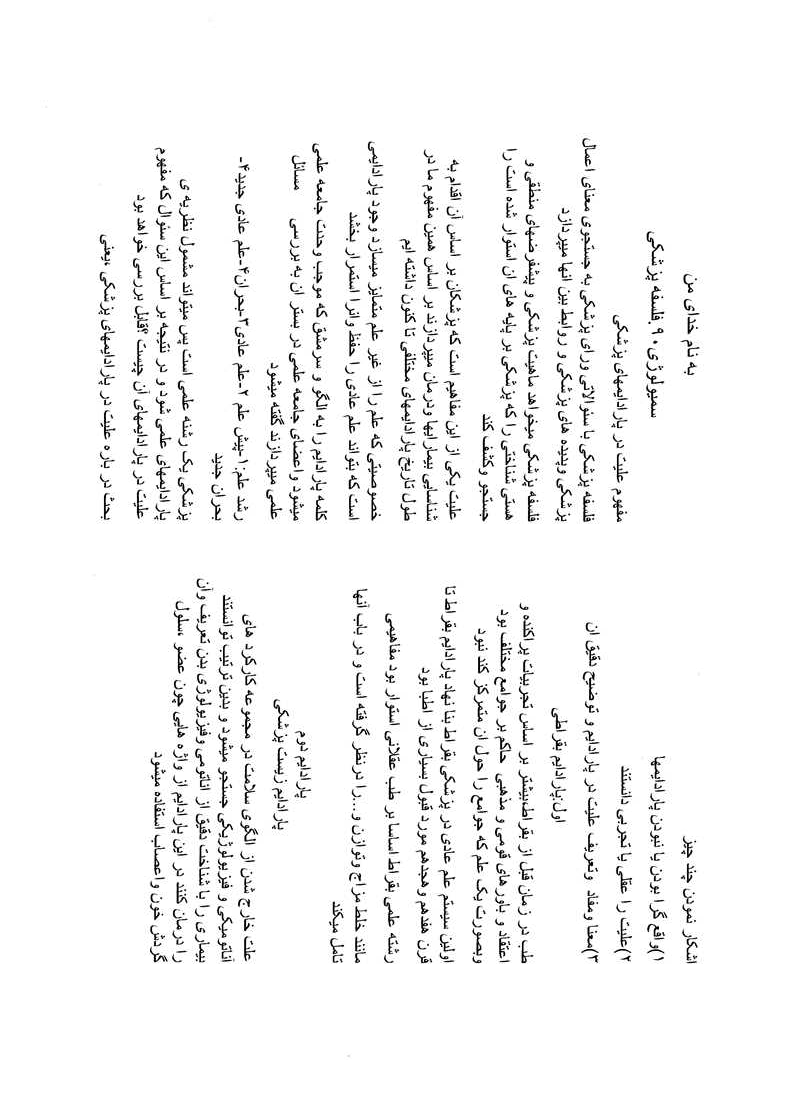 به نام خدای من
سمیولوژی ۹۰ فلسفه پزشکی
مفهوم علیت در پارادایمهای پزشکی
فلسفه پزشکی با سئوالاتی ورای پزشکی به جستجوی معنای اعمال
پزشکی وپدیده های پزشکی و روابط بین انها میپردازد
فلسفه پزشکی میخواهد ماهیت پزشکی و پیشفرضهای منطقی و
هستی شناختی را که پزشکی بر پایه های ان استوار شده است را
جستجو وکشف کند
علیت یکی از این مفاهیم است که پزشکان بر اساس آن اقدام به
شناسایی بیماریها ودرمان میپردازند بر اساس همین مفهوم ما در
طول تاریخ پارادایمهای مختلفی تا کنون داشته ایم
خصوصیتی که علم را از غیر علم متمایز میسازد وجود پارادایمی
است که بتواند علم عادی را حفظ وانرا استمرار بخشد
کلمه پارادایم را به الگو و سرمشق که موجب وحدت جامعه علمی
میشود واعضای جامعه علمی در بستر ان به بررسی مسائل
علمی میپردازند گفته میشود
رشد علم:۱-پیش علم ۲-علم عادی۳-بحران۴-علم عادی جدید۴-
بحران جدید
پزشکی یک رشته علمی است پس میتواند مشمول نظریه ی
پارادایمهای علمی شود و در نتیجه بر اساس این سئوال که مفهوم
علیت در پارادایمهای آن چیست ؟قابل بررسی خواهد بود
بحث در باره علیت در پارادایمهای پزشکی ،یعنی
اشکار نمودن چند چیز
۱)واقع گرا بودن یا نبودن پارادایمها
۲)علیت را عقلی یا تجربی دانستند
۳)معنا ومفاد وتعریف علیت در پارادایم و توضیح دقیق ان
اول:پارادایم بقراطی
طب در زمان قبل از بقراط،بیشتر بر اساس تجربیات پراکنده و
اعتقاد و باورهای قومی و مذهبی حاکم بر جوامع مختلف بود
وبصورت یک علم که جوامع را حول ان متمرکز کند نبود
اولین سیستم علم عادی در پزشکی بقراط بنا نهاد پارادایم بقراط تا
قرن هفدهم وهجدهم مورد قبول بسیاری از اطبا بود
رشته علمی بقراط اساسا بر طب عقلانی استوار بود مفاهیمی
مانند خلط مزاج وتوازن و...را در نظر گرفته است و در باب آنها
تامل میکند
پارادایم دوم
پارادایم زیست پزشکی
علت خارج شدن از الگوی سلامت در مجموعه کارکرد های
آناتومیکی و فیزیولوژیکی جستجو میشود و بدین ترتیب توانستند
بیماری را با شناخت دقیق از اناتومی وفیزیولوژی بدن تعریف وآن
را درمان کنند در این پارادایم از واژه هایی چون عضو ،سلول
گردش خون واعصاب استفاده میشود